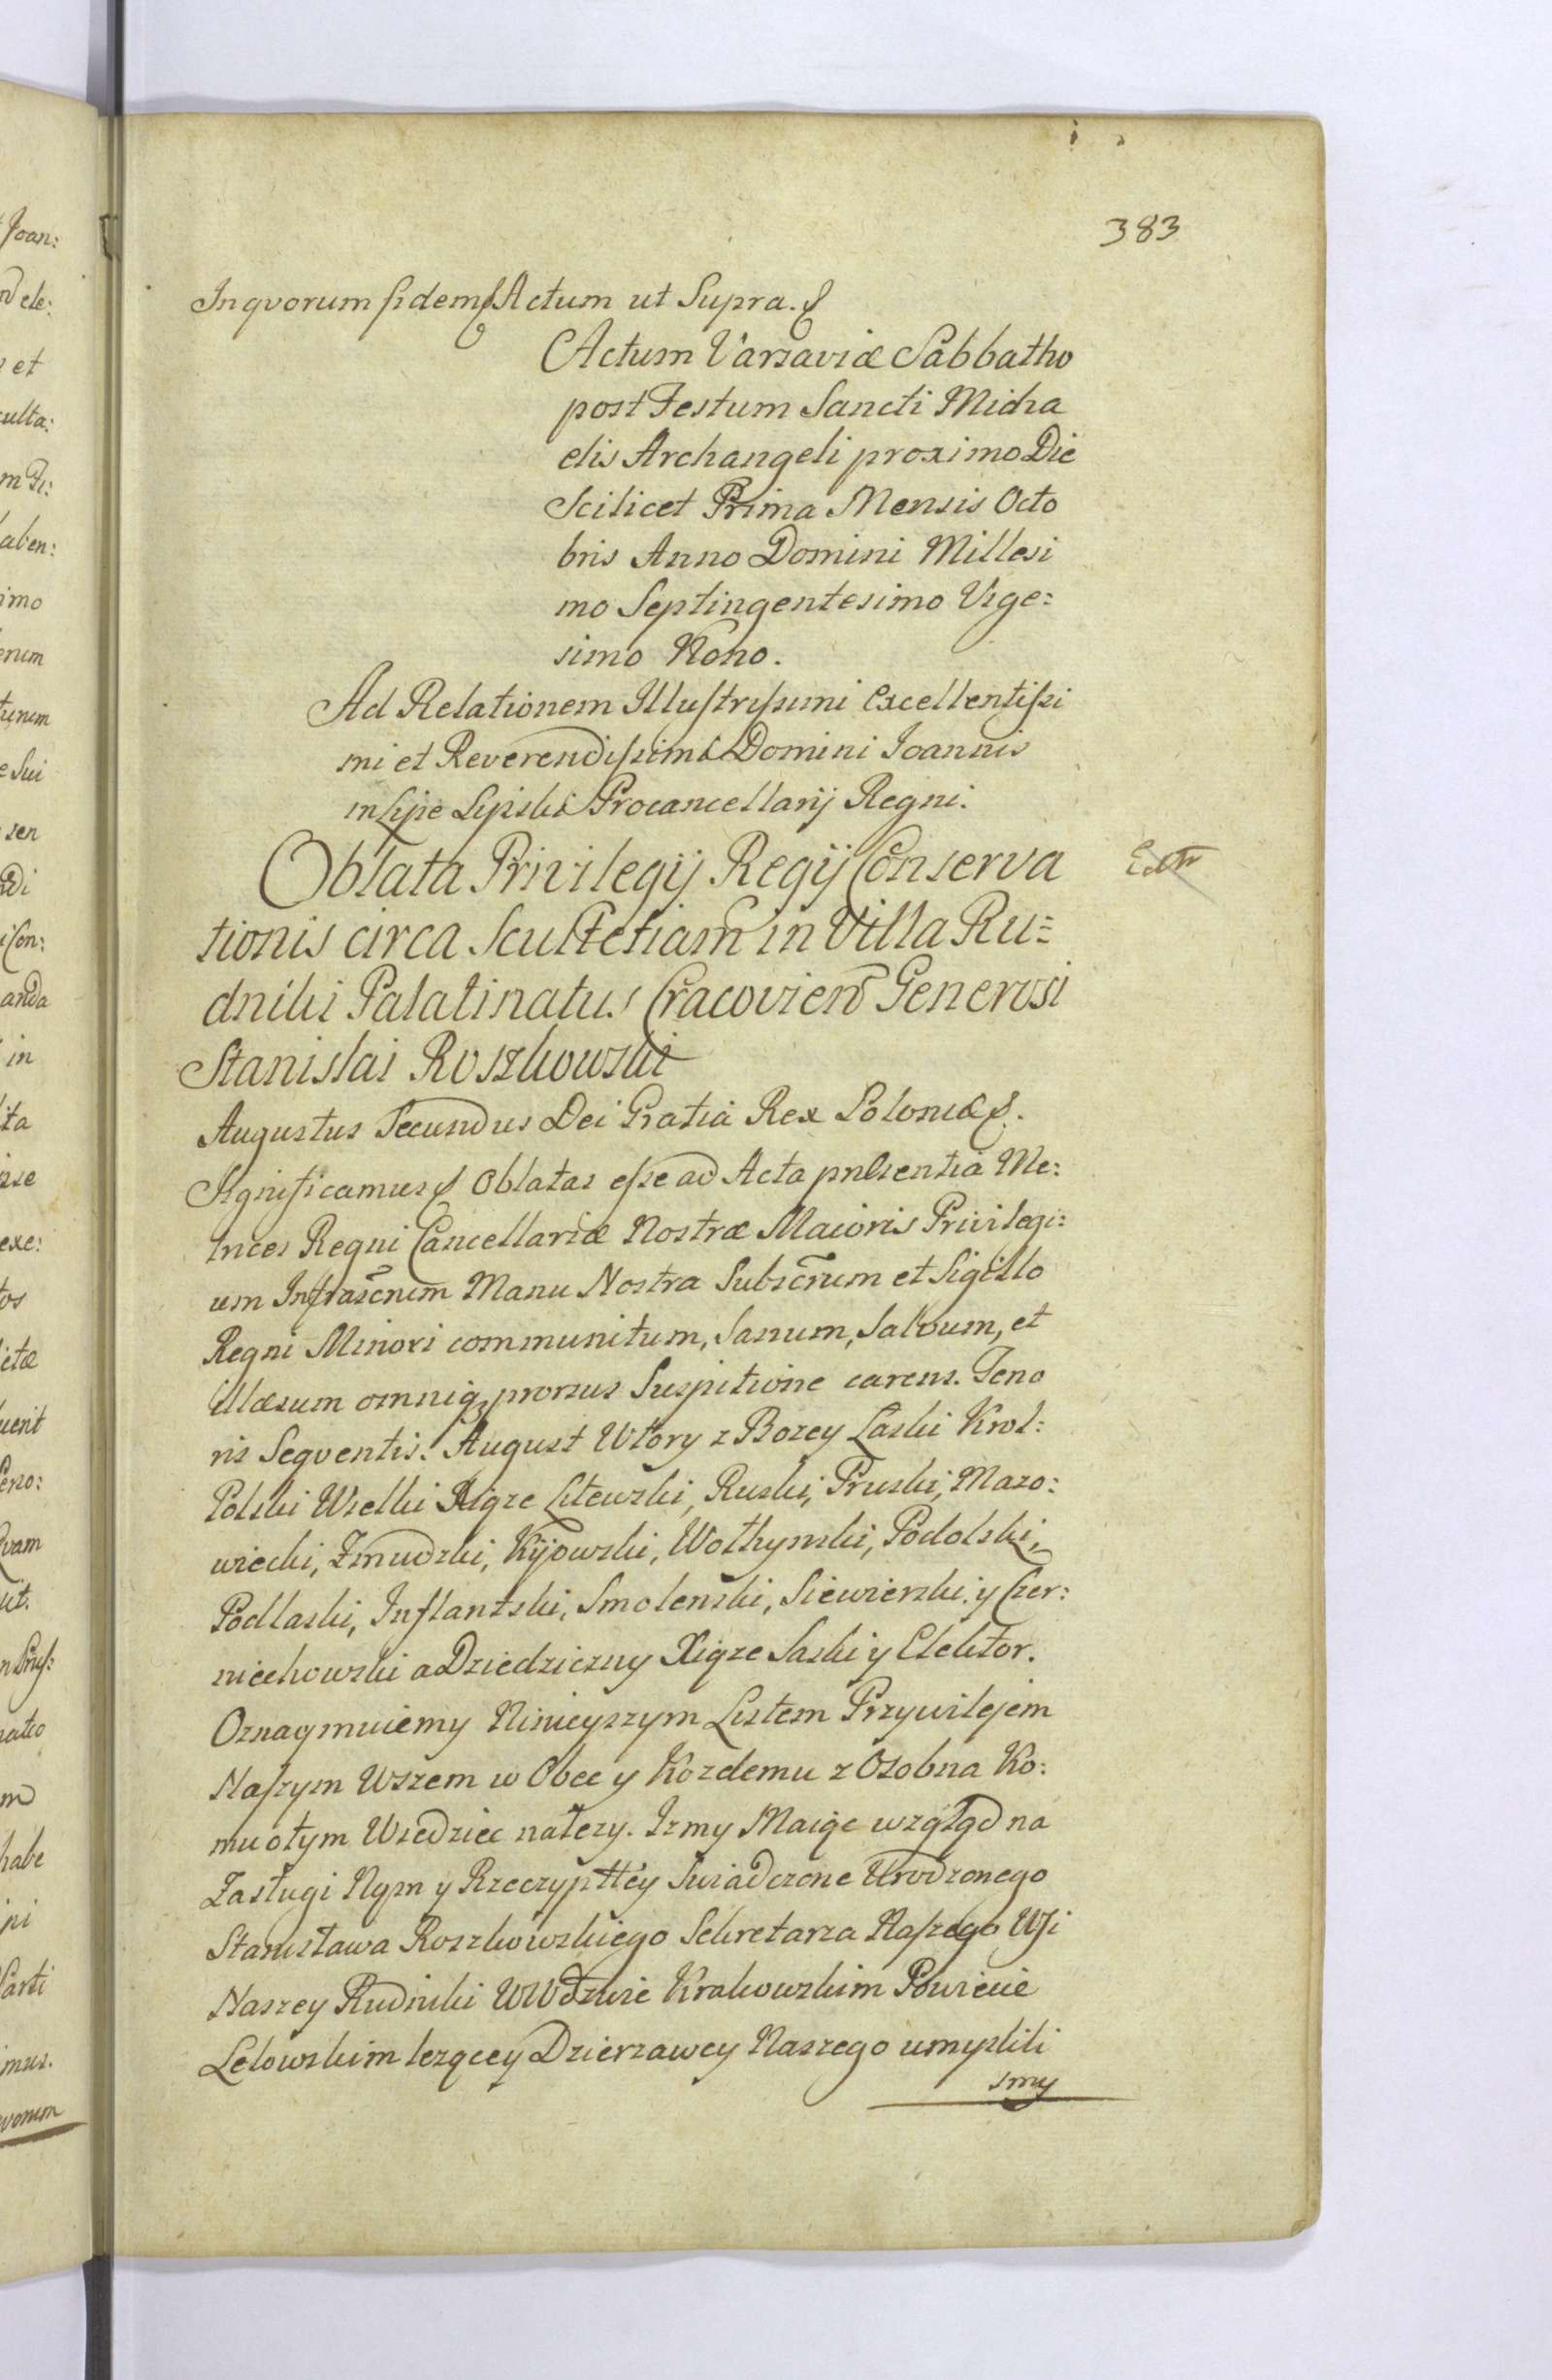 383
Inqvorum fidem & Actum ut Supra. &
Actum Varsaviæ Sabbatho
post Festum Sancti Micha
elis Archangeli proximo Die
Scilicet Prima Mensis Octo
bris Anno Domini Millesi
mo Septingentesimo Vige:
simo Nono.
Ad Relationem Illustrissimi Excellentissi
mi et Reverendissimi Domini Joannis
in Lipie Lipski Procancellarij Regni.
Oblata Privilegij Regij Conserva
tionis circa Scultetiam in Villa Ru=
dniki Palatinatus Cracovien Generosi
Stanislai Roszkowski
Extr
Augustus Secundus Dei Gratia Rex Poloniæ &.
Significamus & Oblatas esse ad Acta pnsentia Me:
trices Regni Cancellariæ Nostræ Maioris Privilegi:
um Infrascrium Manu Nostra Subscrium et Sigillo
Regni Minori communitum, Sanum, Salvum, et
illæsum omniq; prorsus Suspitione carens. Teno
ris Seqventis. August Wtory z Bozey Laski Krol:
Polski Wielki Xiąze Litewski, Ruski, Pruski, Mazo:
wiecki, Zmudzki, Kijowski, Wołhynski, Podolski,
Podlaski, Inflantski, Smolenski, Siewierski y Czer:
niechowski a Dziedziczny Xiąze Saski y Elektor.
Oznaymuiemy Ninieyszym Listem Przywilejem
Naszym Wszem w Obec y Kozdemu z Osobna Ko:
mu otym Wiedziec nalezy. Izmy Maiąc wzgląd na
Zasługi Nąm y Rzeczyptłey Swiadczone Urodzonego
Stanisława Roszkowskiego Sekretarza Naszego Wsi
Naszey Rudniki WWdztwie Krakowskim Powiecie
Lelowskim lezącey Dzierzawcy Naszego umyslili
smy